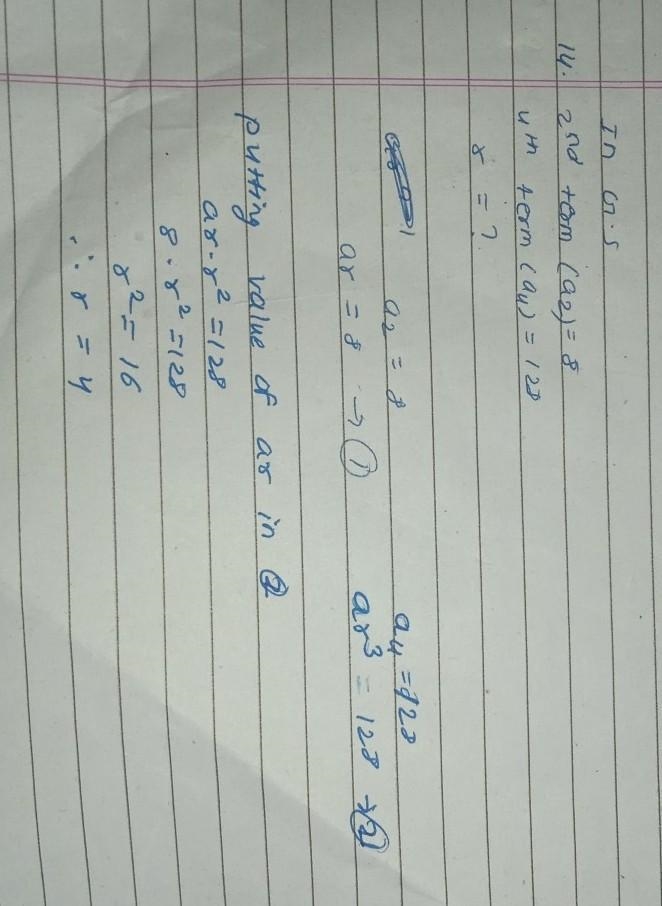 In G.S
14. 2nd term (a2) = 8
4th term (a4) = 128
r = ?
a2 = 8 a4 = 128
ar = 8 → ① ar³ = 128 → ②
putting value of ar in ②
ar · r² = 128
8 · r² = 128
r² = 16
∴ r = 4